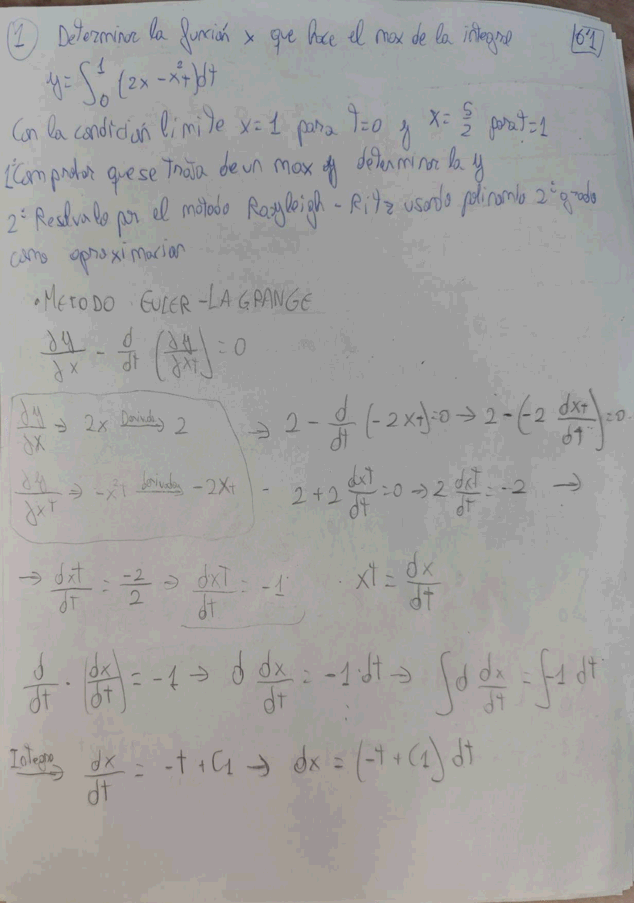 ① Determinar la función x que hace el max de la integral 61
y = ∫₀¹ (2x - x²t) dt
Con la condición límite x=1 para t=0 y x=5/2 para t=1
1º Comprobar que se trata de un max y determinar la y
2º Resolverlo por el método Rayleigh-Ritz usando polinomio 2º grado
como aproximación
• METODO EULER-LAGRANGE
∂y/∂x - d/dt (∂y/∂xt) = 0
∂y/∂x ⇒ 2x derivada→ 2 ⇒ 2 - d/dt (-2xt) = 0 → 2 - (-2 dxt/dt) = 0
∂y/∂xt ⇒ -x²t derivada→ -2xt - 2 + 2 dxt/dt = 0 → 2 dxt/dt = -2 →
→ dxt/dt = -2/2 ⇒ dxt/dt = -1 · xt = dx/dt
d/dt · (dx/dt) = -1 → d dx/dt = -1·dt → ∫ d dx/dt = ∫-1 dt
Integro→ dx/dt = -t + C1 → dx = (-t + C1) dt